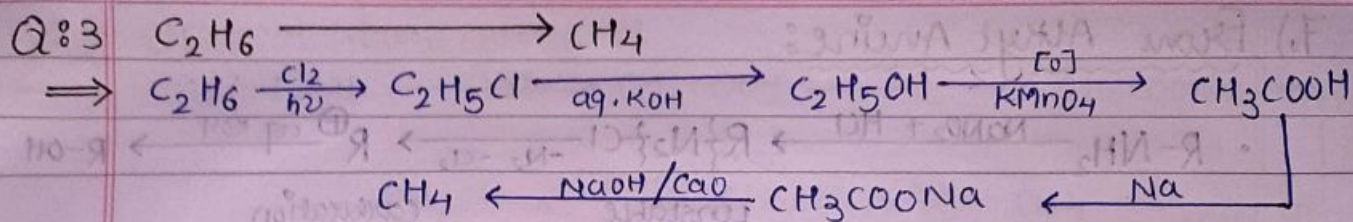 Q:3 C2H6 ⟶ CH4
⟹ C2H6 —Cl2/hν→ C2H5Cl —aq.KOH→ C2H5OH —[O]/KMnO4→ CH3COOH
CH4 ←NaOH/CaO— CH3COONa ←Na—